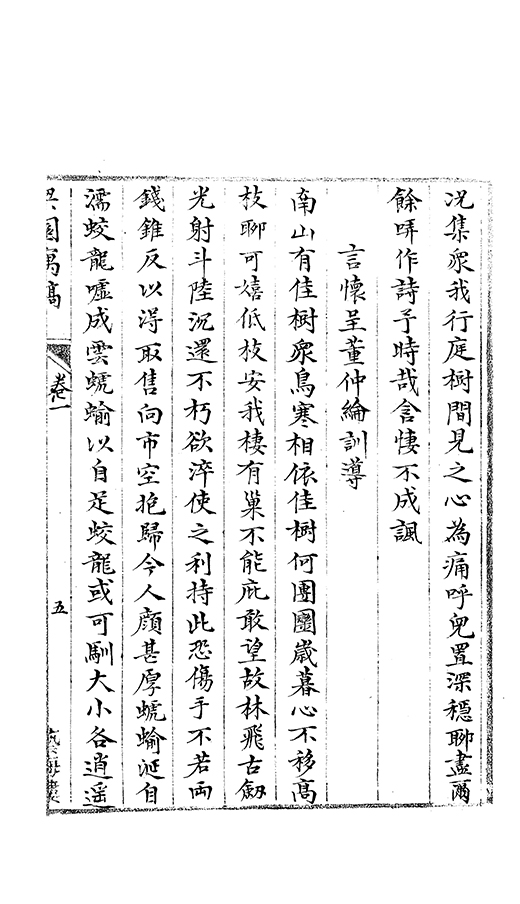 況集衆我行庭樹間見之心為痛呼兒置深穩聊盡爾
餘哢作詩予時哉含悽不成諷
言懷呈董仲綸訓導
南山有佳樹衆鳥寒相依佳樹何團團歲暮心不移高
枝聊可嬉低枝安我棲有巢不能庇敢望故林飛古劒
光射斗陸沉還不朽欲淬使之利持此恐傷手不若両
錢錐反以淂取售向市空抱歸令人顔甚厚蜿蝓涎自
濡蛟龍嘘成雲蜿蝓以自足蛟龍或可馴大小各逍遥
卷一
五